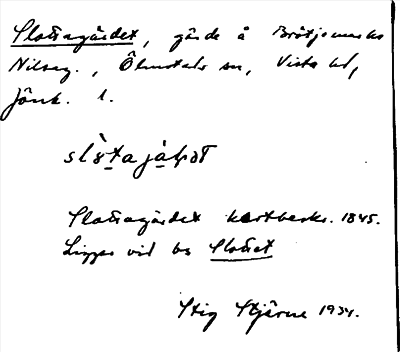 Slottagärdet, gärde å Brötjemarks
Nilsag., Ölmstads sn, Vista hd,
Jönk. l.
slòtajàḷṣət
Slottagärdet kartbeskr. 1845.
Ligger vid bs Slottet
Stig Stjärne 1934.